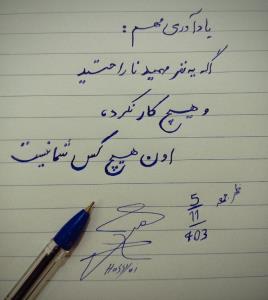 یادآوری مهم:
اگه یه نفر فهمید ناراحتید
و هیچ کار نکرد،
اون هیچ کس شما نیست
5
11
403